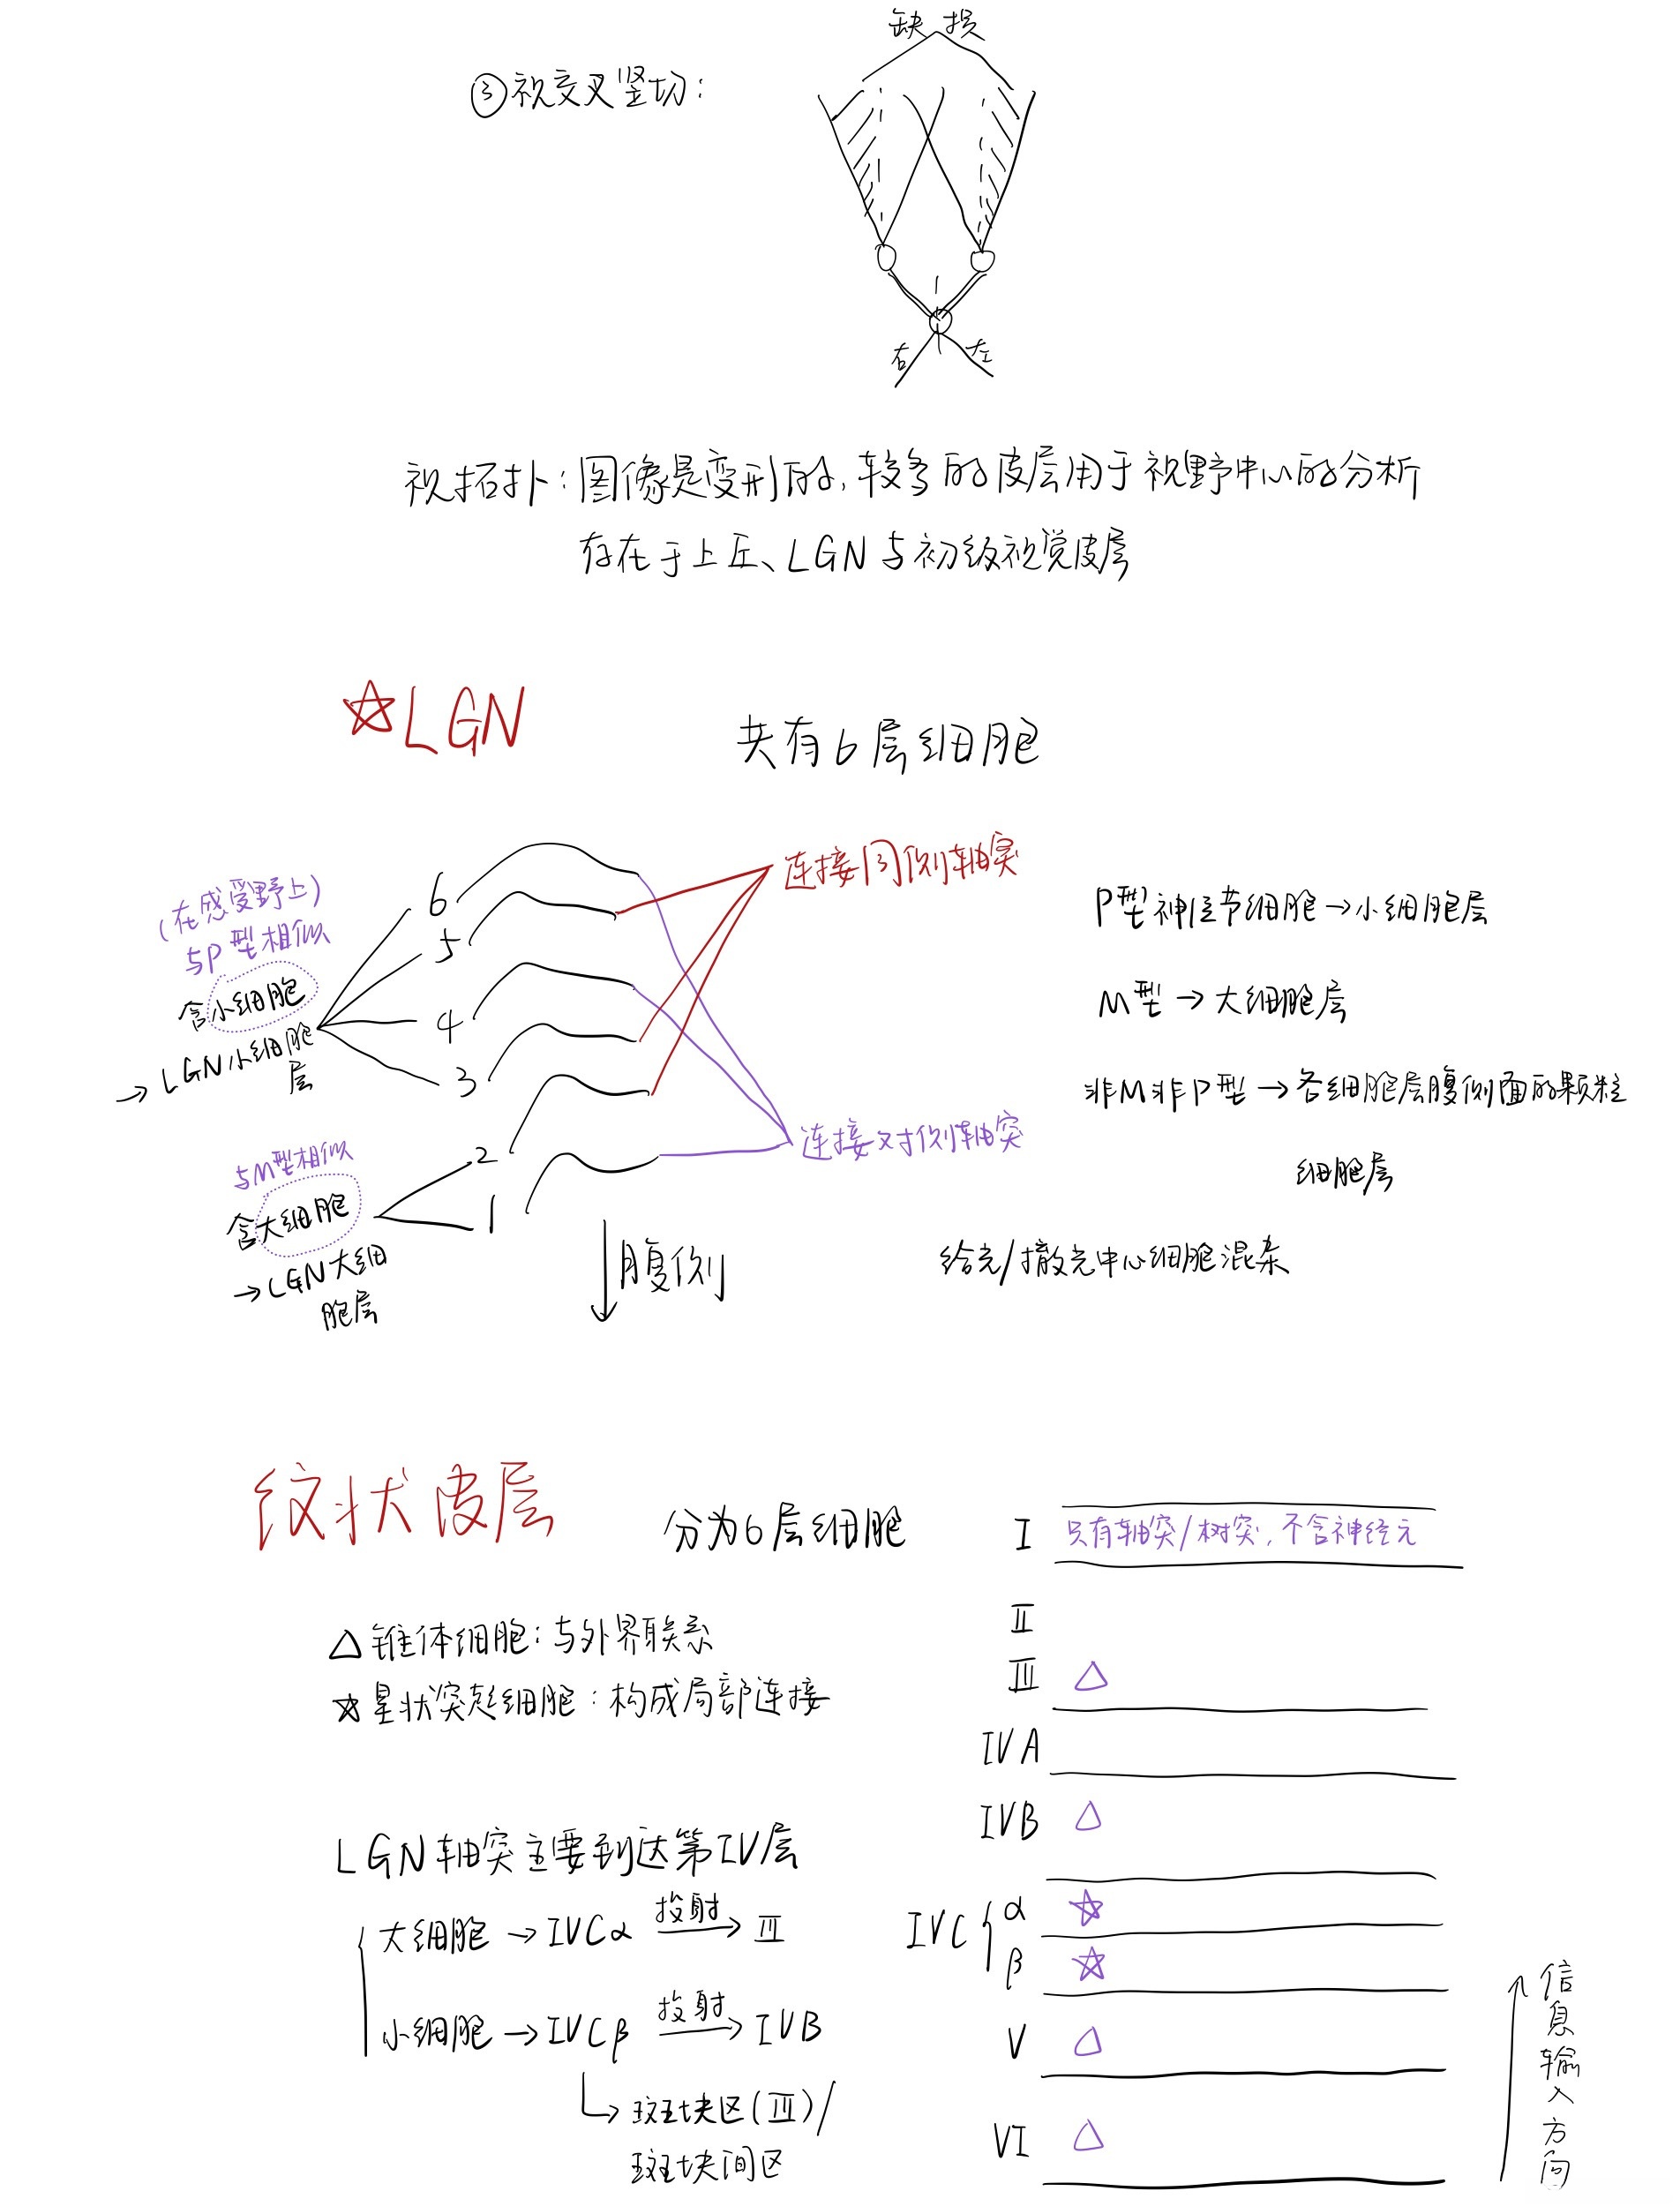 缺损
③视交叉竖切：
右 左
视拓扑：图像是变形的，较多的皮层用于视野中心的分析
存在于上丘、LGN与初级视觉皮层
☆LGN
共有6层细胞
连接同侧轴突
(在感受野上)
与P型相似
含小细胞
→LGN小细胞
层
6
5
4
3
2
1
P型神经节细胞→小细胞层
M型→大细胞层
非M非P型→各细胞层腹侧面的颗粒
细胞层
连接对侧轴突
与M型相似
含大细胞
→LGN大细
胞层
腹侧
给光/撤光中心细胞混杂
纹状皮层
分为6层细胞
I 只有轴突/树突，不含神经元
II
III △
IVA
IVB △
IVC { α ☆
β ☆
V △
VI △
信息输入方向
△锥体细胞：与外界联系
☆星状突起细胞：构成局部连接
LGN轴突主要到达第IV层
大细胞→IVCα 投射→ III
小细胞→IVCβ 投射→ IVB
↳斑块区(III)/
斑块间区